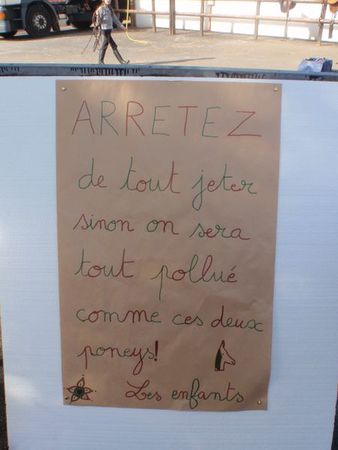 ARRETEZ
de tout jeter
sinon on sera
tout pollué
comme ces deux
poneys!
Les enfants